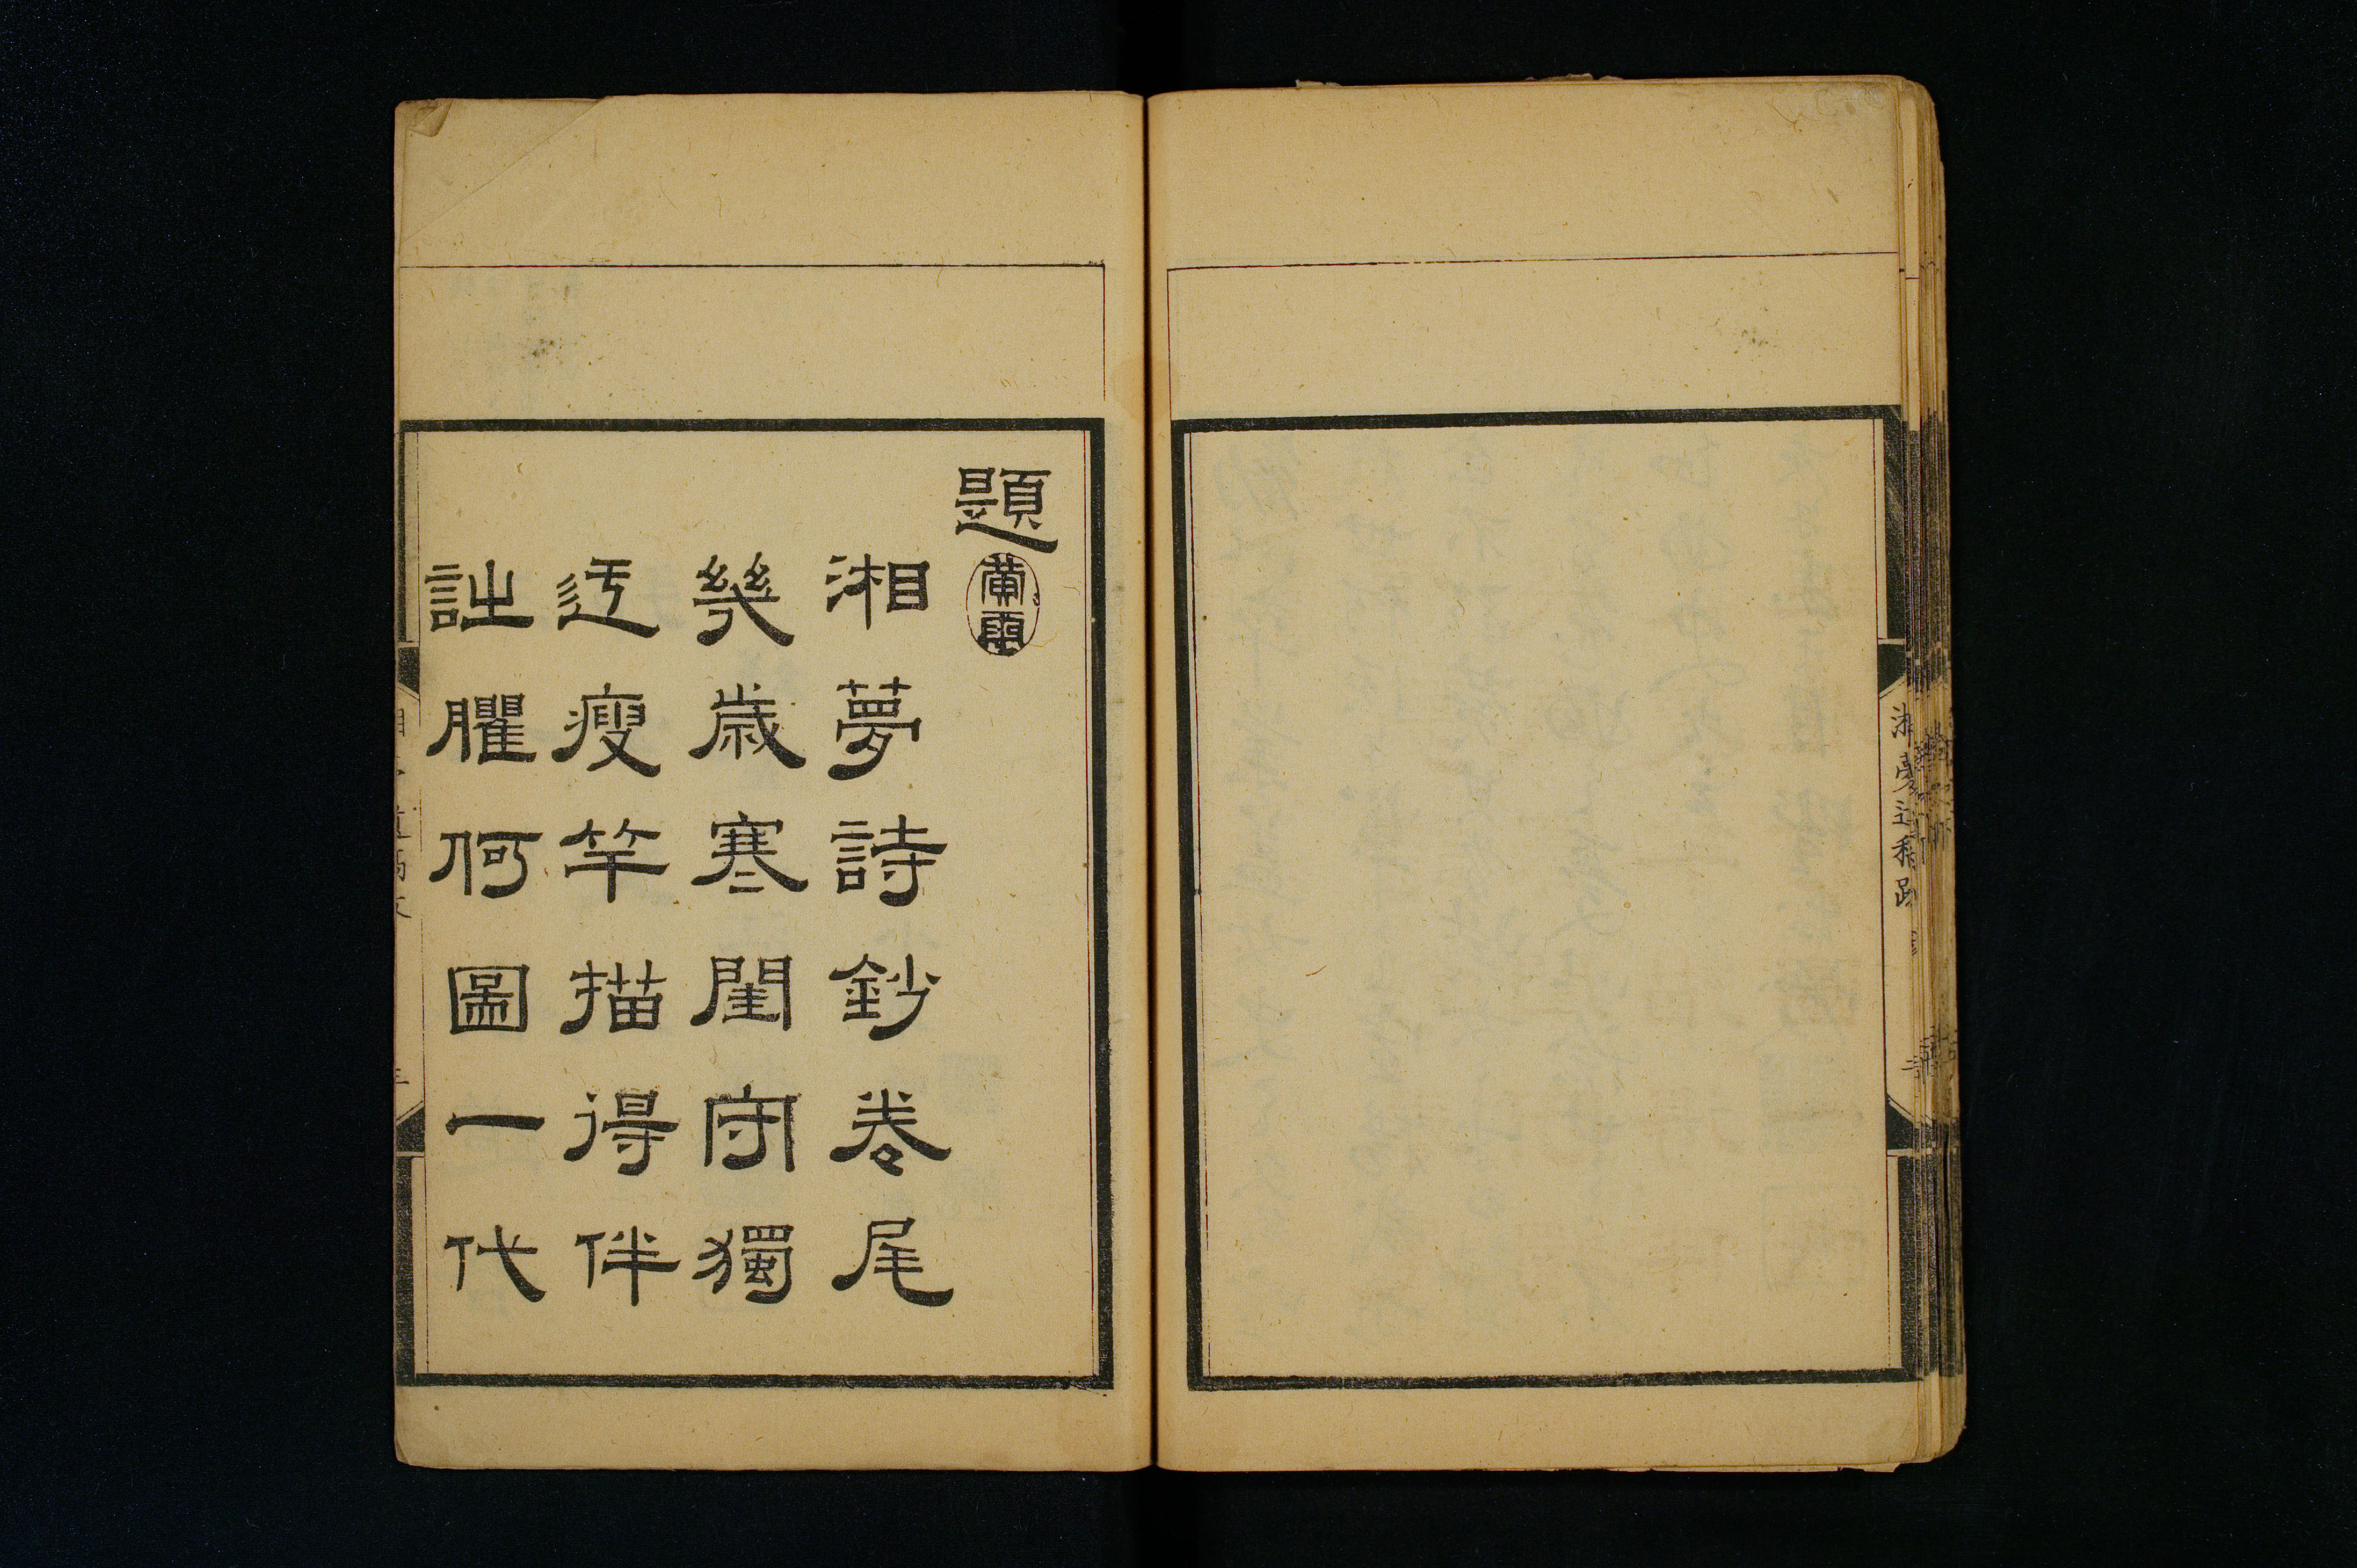 湘夢遺稿跋
題
湘夢詩鈔卷尾
幾歲寒閨守獨
迂瘦竿描得伴
詘臞何圖一代